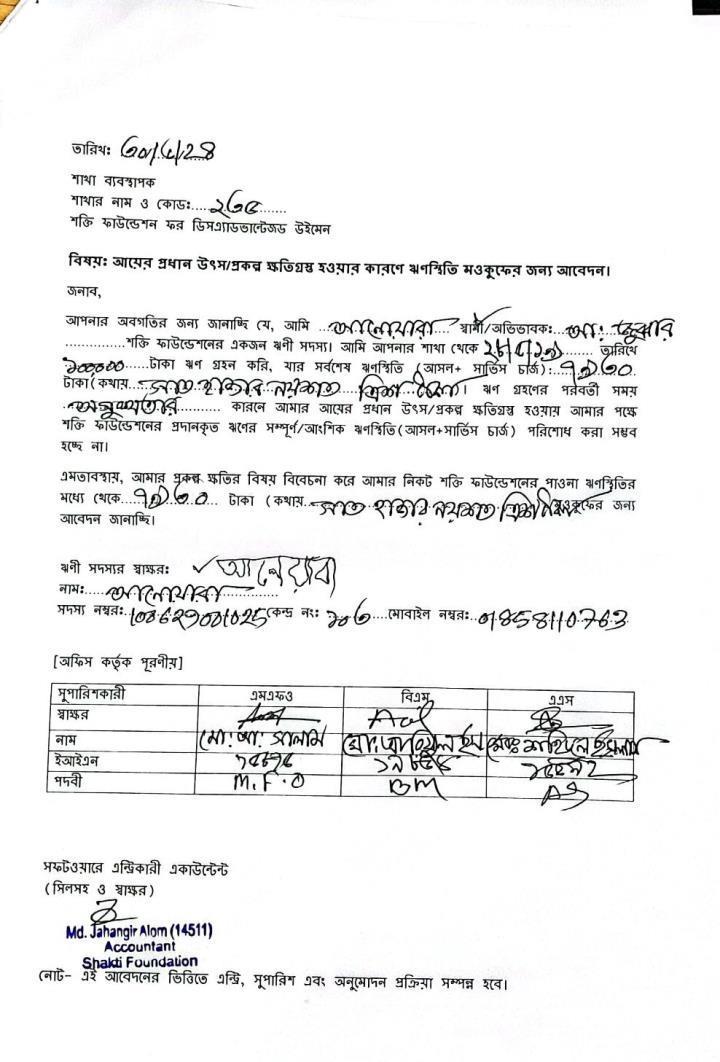 তারিখঃ ৩০/৫/২৪
শাখা ব্যবস্থাপক
শাখার নাম ও কোডঃ..... ২৬৫.......
শক্তি ফাউন্ডেশন ফর ডিসএ্যাডভান্টেজড উইমেন
বিষয়ঃ আয়ের প্রধান উৎস/প্রকল্প ক্ষতিগ্রস্থ হওয়ার কারণে ঋণস্থিতি মওকুফের জন্য আবেদন।
জনাব,
আপনার অবগতির জন্য জানাচ্ছি যে, আমি ...আনোয়ারা... স্বামী/অভিভাবকঃ...আঃ
...............শক্তি ফাউন্ডেশনের একজন ঋণী সদস্য। আমি আপনার শাখা থেকে তারিখে
১০০০০০......টাকা ঋণ গ্রহন করি, যার সর্বশেষ ঋণস্থিতি (আসল+ সার্ভিস চার্জ)ঃ...৭৯৩০
টাকা(কথায়...সাত হাজার নয়শত ত্রিশ )। ঋণ গ্রহণের পরবর্তী সময়
অসুস্থতার........... কারনে আমার আয়ের প্রধান উৎস/প্রকল্প ক্ষতিগ্রস্থ হওয়ায় আমার পক্ষে
শক্তি ফাউন্ডেশনের প্রদানকৃত ঋণের সম্পূর্ণ/আংশিক ঋণস্থিতি(আসল+সার্ভিস চার্জ) পরিশোধ করা সম্ভব
হচ্ছে না।
এমতাবস্থায়, আমার প্রকল্প ক্ষতির বিষয় বিবেচনা করে আমার নিকট শক্তি ফাউন্ডেশনের পাওনা ঋণস্থিতির
মধ্যে থেকে...৭৯৩০... টাকা (কথায়...সাত হাজার নয়শত ত্রিশ মওকুফের জন্য
আবেদন জানাচ্ছি।
ঋণী সদস্যর স্বাক্ষরঃ আনোয়ারা
নামঃ.....আনোয়ারা...............
সদস্য নম্বরঃ. কেন্দ্র নং: ১০৬....মোবাইল নম্বরঃ..01858110763
[অফিস কর্তৃক পূরণীয়]
সুপারিশকারী এমএফও বিএম এএস
স্বাক্ষর
নাম মোঃ আঃ সালাম মোঃ মোঃ শহিদুল ইসলাম
ইআইএন
পদবী M.F.O BM AS
সফটওয়ারে এন্ট্রিকারী একাউন্টেন্ট
(সিলসহ ও স্বাক্ষর)
Md. Jahangir Alom (14511)
Accountant
Shakti Foundation
নোট- এই আবেদনের ভিত্তিতে এন্ট্রি, সুপারিশ এবং অনুমোদন প্রক্রিয়া সম্পন্ন হবে।